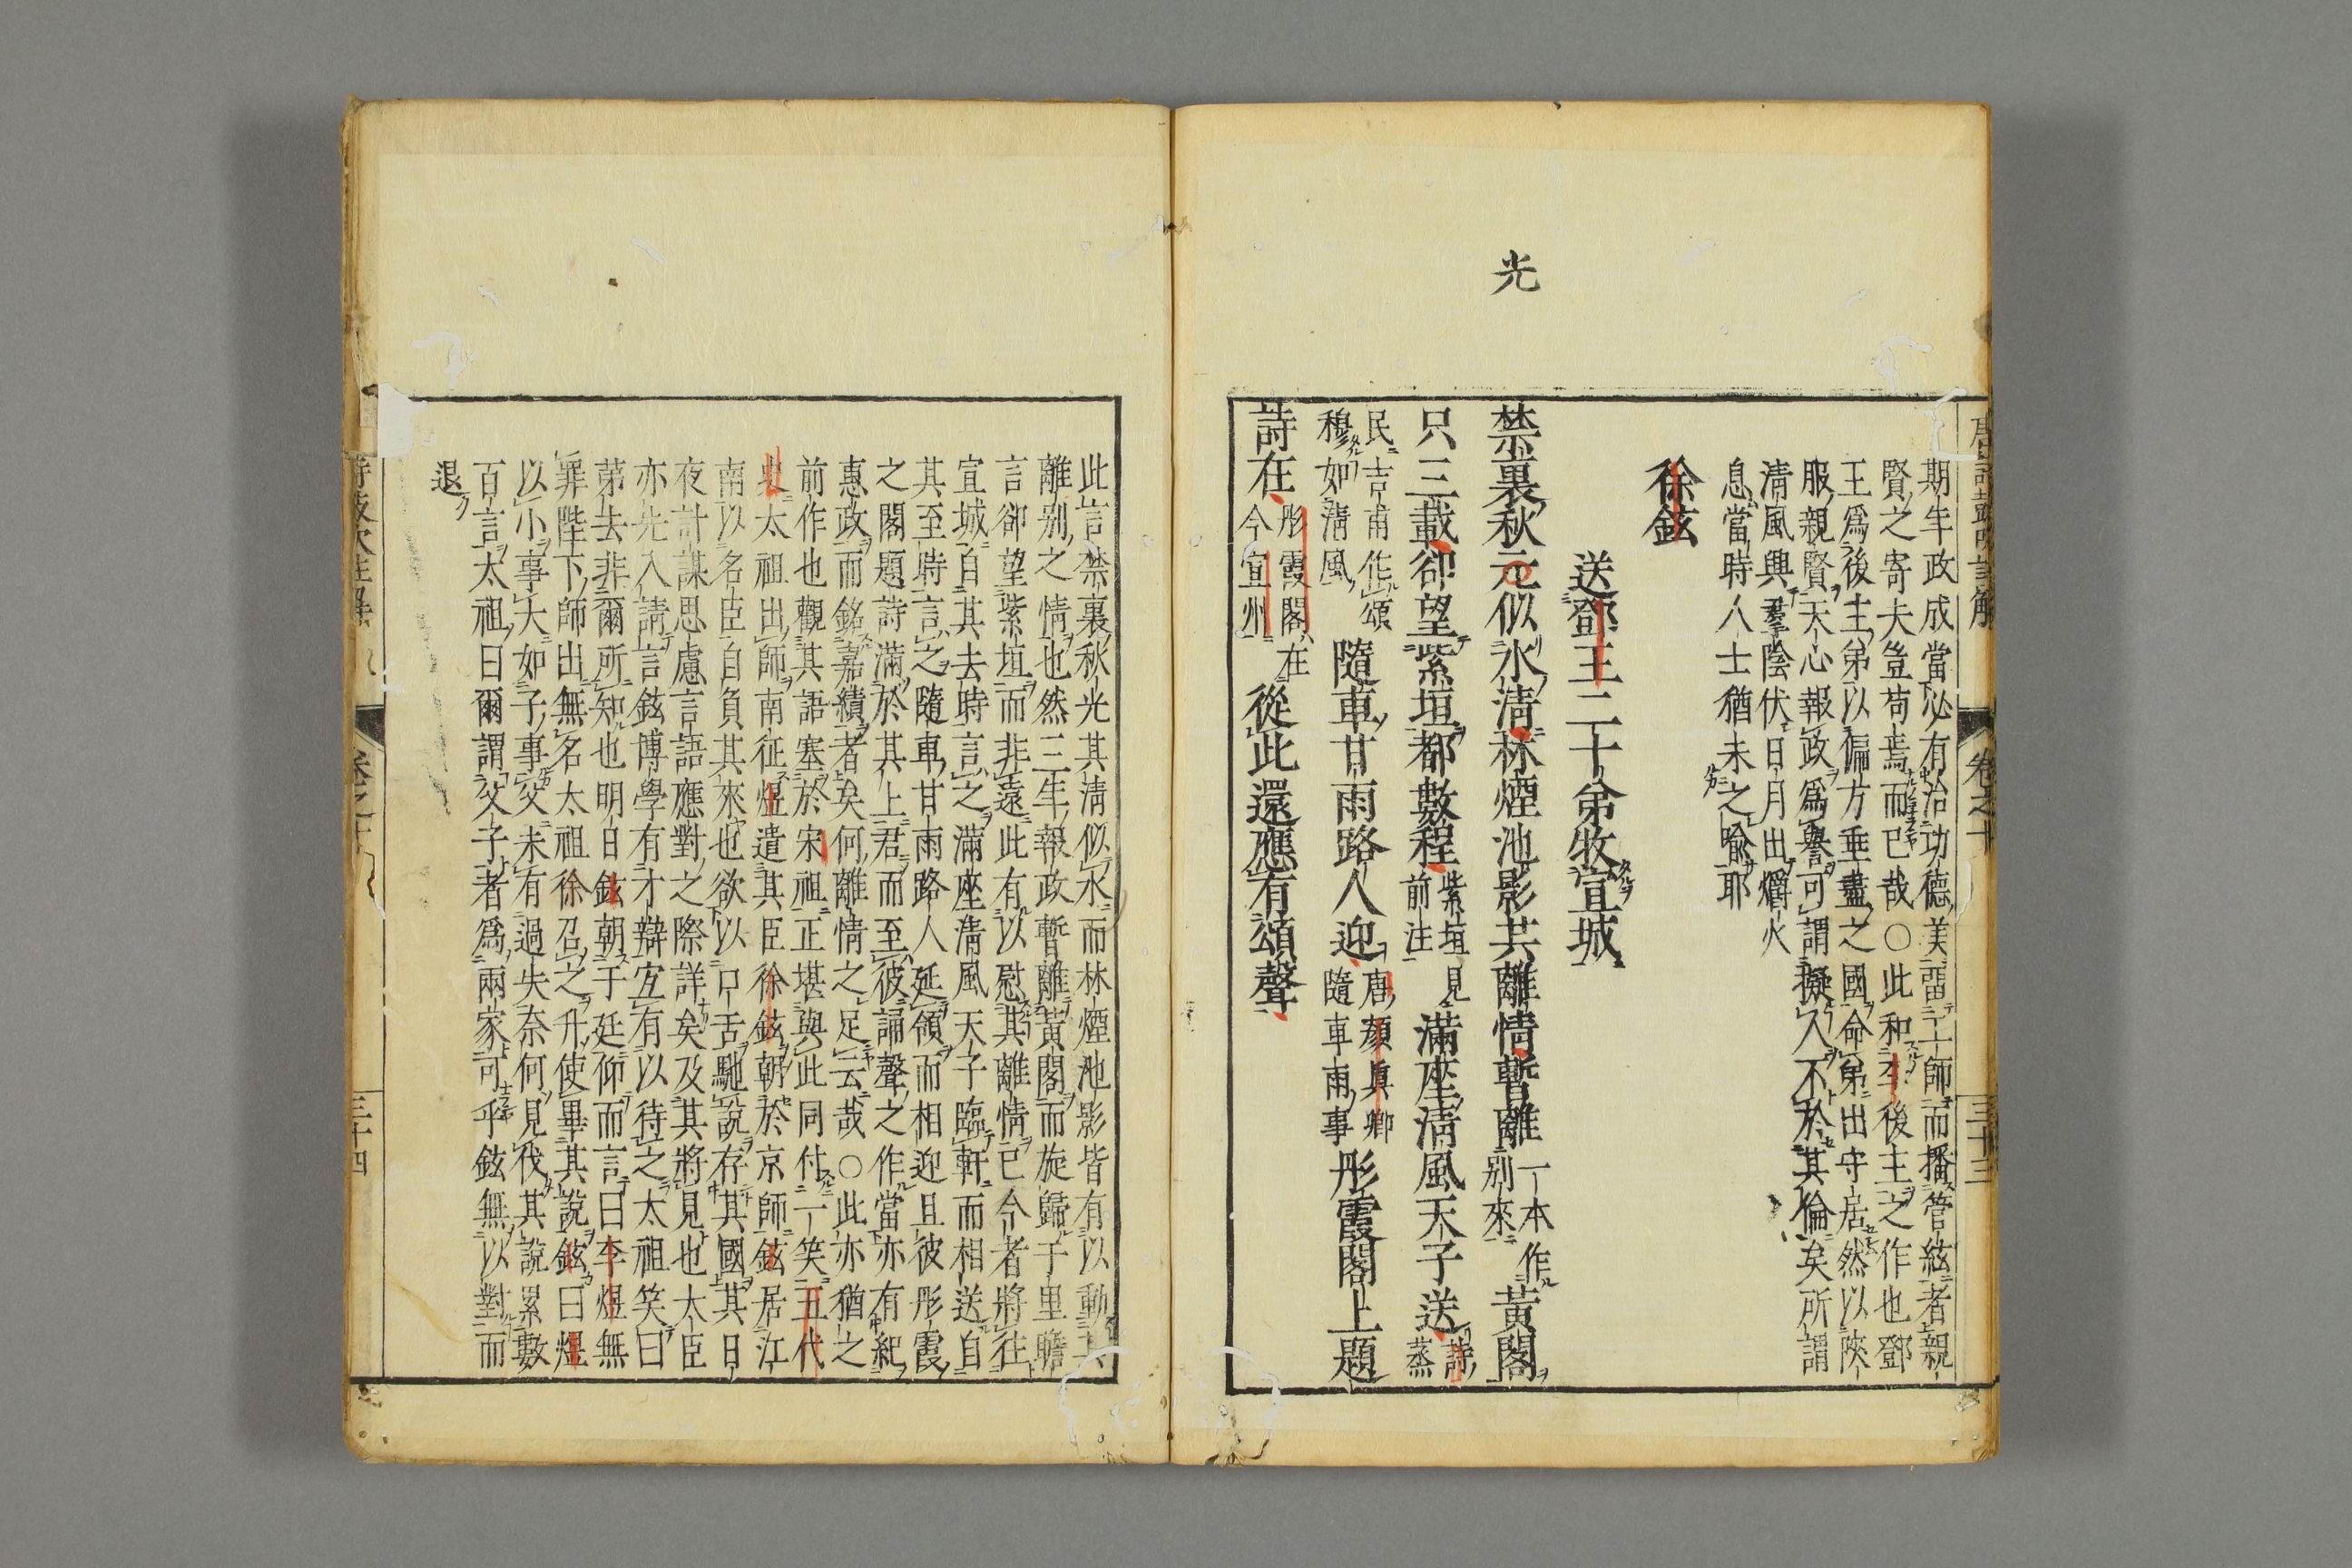 期年政成當必有治功德美留二十師而播管絃者親
賢之寄夫豈苟焉而已哉〇此和李後主之作也鄧
王爲後主弟以偏方垂盡之國命弟出守居然以陝
服親賢天心報政爲譽可謂擬人不於其倫矣所謂
清風興羣陰伏日月出爝火
息當時人士猶未之喻耶
徐鉉
送鄧王二十弟牧宣城
光
禁裏秋元似水清林煙池影共離情暫離一本作别來黃閣
只三載卻望紫垣都數程紫垣見前注滿座清風天子送詩蒸
民吉甫作頌穆如清風隨車甘雨路人迎唐顏眞卿隨車雨事彤霞閣上題
詩在彤霞閣在今宣州從此還應有頌聲
卷之十
三十三
此言禁裏秋光其清似水而林煙池影皆有以動其
離别之情也然三年報政暫離黃閣而旋歸于里瞻
言卻望紫垣而非遠此有以慰其離情已今者將往
宣城自其去時言之滿座淸風天子臨軒而相送自
其至時言之隨車甘雨路人延領而相迎且彼彤霞
之閣題詩滿於其上君而至彼誦聲之作當亦有紀
惠政而銘嘉績者矣何離情之足云哉〇此亦猶之
前作也觀其語塞於宋祖正堪與此同付一笑五代
史太祖出師南征煜遣其臣徐鉉朝於京師鉉居江
南以名臣自負其來也欲以口舌馳說存其國其日
夜計謀思慮言語應對之際詳矣及其將見也大臣
亦先入請言鉉博學有才辯宜有以待之太祖笑曰
苐去非爾所知也明日鉉朝于廷仰而言曰李煜無
罪陛下師出無名太祖徐召之升使畢其說鉉曰煜
以小事大如子事父未有過失奈何見伐其說累數
百言太祖曰爾謂父子者爲兩家可乎鉉無以對而
退
三十四